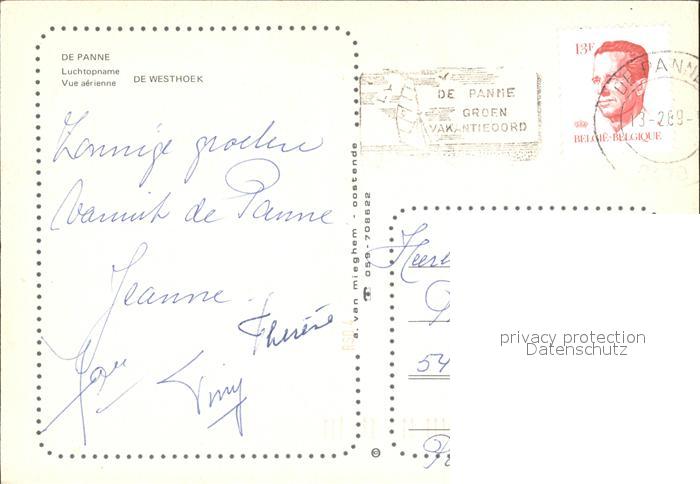 DE PANNE
Luchtopname
Vue aérienne
DE WESTHOEK
Zonnige groeten
vanuit de Panne
Jeanne
Thérèse
a. van mieghem - oostende
☎ 059-708622
DE PANNE
GROEN
VAKANTIEOORD
13F
BELGIË-BELGIQUE
DE PANNE
13-289-
54
privacy protection
Datenschutz
©